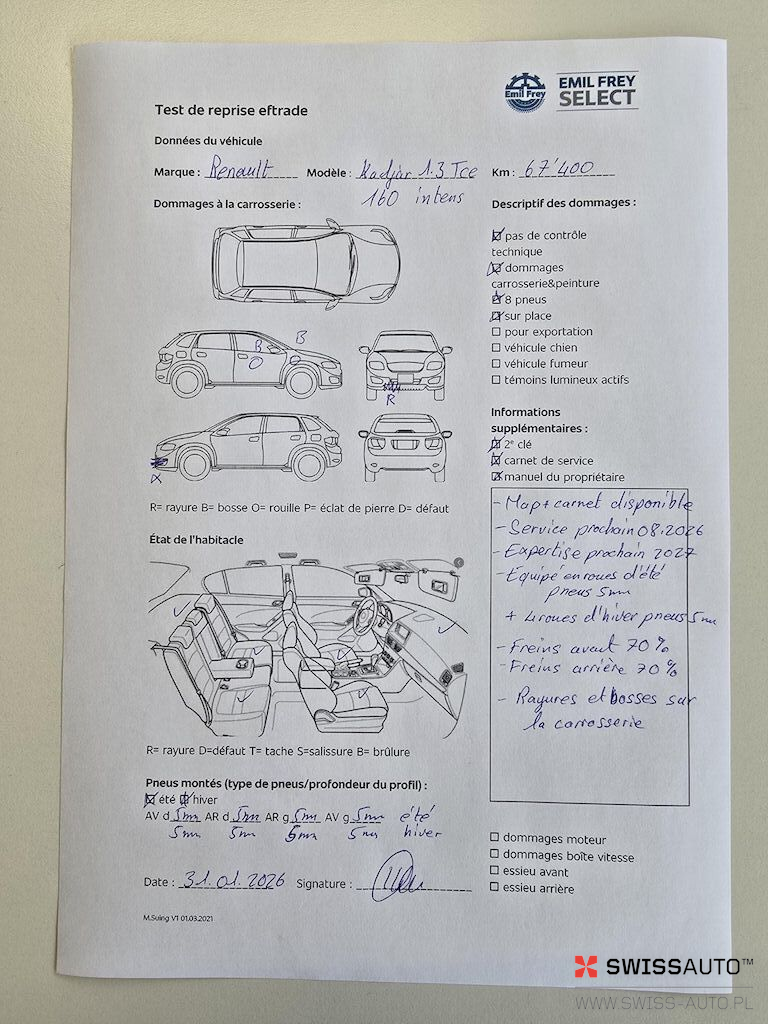 Emil Frey
EMIL FREY
SELECT
Test de reprise eftrade
Données du véhicule
Marque : Renault Modèle : Kadjar 1.3 Tce Km : 67'400
160 intens
Dommages à la carrosserie :
Descriptif des dommages :
pas de contrôle
technique
dommages
carrosserie&peinture
8 pneus
sur place
pour exportation
véhicule chien
véhicule fumeur
témoins lumineux actifs
B B
O O
R
X
R= rayure B= bosse O= rouille P= éclat de pierre D= défaut
Informations
supplémentaires :
2e clé
carnet de service
manuel du propriétaire
- Map + carnet disponible
- Service prochain 08.2026
- Expertise prochain 2027
- Equipé en roues d'été
pneus 5mm
+ 4 roues d'hiver pneus 5mm
- Freins avant 70%
- Freins arrière 70%
- Rayures et bosses sur
la carrosserie
État de l'habitacle
R= rayure D=défaut T= tache S=salissure B= brûlure
Pneus montés (type de pneus/profondeur du profil) :
été hiver
AV d 5mm AR d 5mm AR g 5mm AV g 5mm été
5mm 5mm 5mm 5mm hiver
Date : 31.01.2026 Signature :
M.Suing V1 01.03.2021
dommages moteur
dommages boîte vitesse
essieu avant
essieu arrière
SWISSAUTO™
WWW.SWISS-AUTO.PL